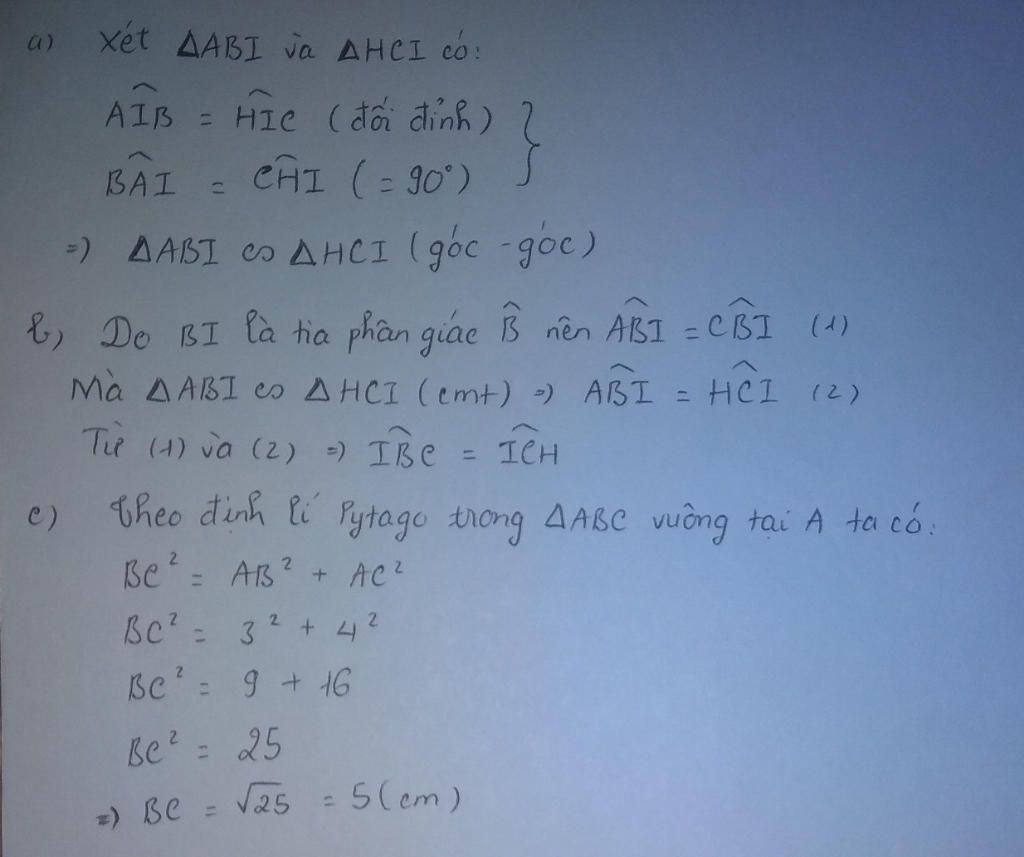 a) Xét ΔABI và ΔHCI có:
AÎB = HÎC (đối đỉnh) }
BÂI = CĤI (= 90°)
=) ΔABI ∽ ΔHCI (góc - góc)
b) Do BI là tia phân giác B̂ nên AB̂I = CB̂I (1)
Mà ΔABI ∽ ΔHCI (cmt) =) AB̂I = HĈI (2)
Từ (1) và (2) =) IB̂C = IĈH
c) Theo định lí Pytago trong ΔABC vuông tại A ta có:
BC² = AB² + AC²
BC² = 3² + 4²
BC² = 9 + 16
BC² = 25
=) BC = √25 = 5 (cm)